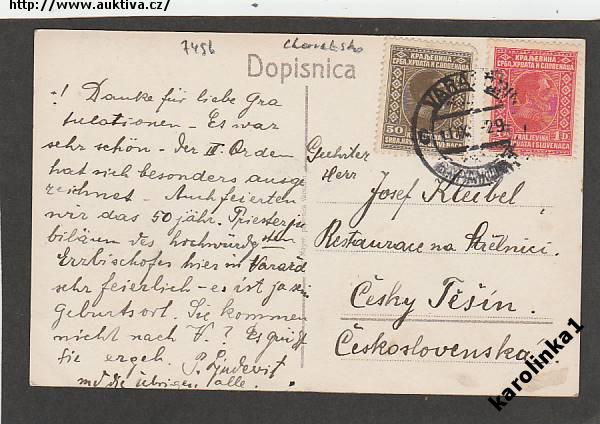 http://www.auktiva.cz/
7456
Dopisnica
! Danke für liebe Gra
tulationen – Es war
sehr schön – Der III. Orden
hat sich besonders ausge
zeichnet – Auch feierten
wir das 50 jähr. Priesterju
biläum des hochwürdgsten
Erzbischofes hier in Varažd
sehr feierlich – es ist ja sein
Geburtsort. Sie kommen
nicht nach V.? Es grüßt
Sie ergeb. P.
und die übrigen alle.
КРАЉЕВИНА
СРБА, ХРВАТА И СЛОВЕНАЦА
50
КРАЉЕВИНА
СРБА, ХРВАТА И СЛОВЕНАЦА
1D
KRALJEVINA
SRBA, HRVATA I SLOVENACA
29
Geehrter
Herr
Josef Kleibel,
Restaurace na Střelnici
Česky Těšín.
Československa
karolinka1